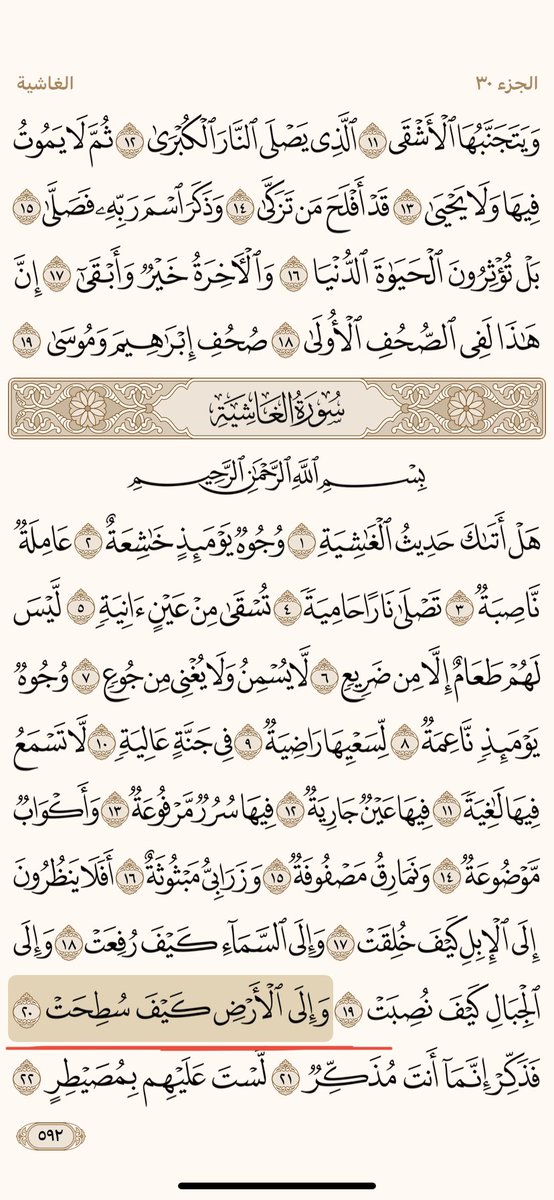 الجزء ٣٠ الغاشية
وَيَتَجَنَّبُهَا ٱلۡأَشۡقَى ١١ ٱلَّذِي يَصۡلَى ٱلنَّارَ ٱلۡكُبۡرَىٰ ١٢ ثُمَّ لَا يَمُوتُ
فِيهَا وَلَا يَحۡيَىٰ ١٣ قَدۡ أَفۡلَحَ مَن تَزَكَّىٰ ١٤ وَذَكَرَ ٱسۡمَ رَبِّهِۦ فَصَلَّىٰ ١٥
بَلۡ تُؤۡثِرُونَ ٱلۡحَيَوٰةَ ٱلدُّنۡيَا ١٦ وَٱلۡأٓخِرَةُ خَيۡرٞ وَأَبۡقَىٰٓ ١٧ إِنَّ
هَٰذَا لَفِي ٱلصُّحُفِ ٱلۡأُولَىٰ ١٨ صُحُفِ إِبۡرَٰهِيمَ وَمُوسَىٰ ١٩
سُورَةُ الغَاشِيَةِ
بِسۡمِ ٱللَّهِ ٱلرَّحۡمَٰنِ ٱلرَّحِيمِ
هَلۡ أَتَىٰكَ حَدِيثُ ٱلۡغَٰشِيَةِ ١ وُجُوهٞ يَوۡمَئِذٍ خَٰشِعَةٌ ٢ عَامِلَةٞ
نَّاصِبَةٞ ٣ تَصۡلَىٰ نَارًا حَامِيَةٗ ٤ تُسۡقَىٰ مِنۡ عَيۡنٍ ءَانِيَةٖ ٥ لَّيۡسَ
لَهُمۡ طَعَامٌ إِلَّا مِن ضَرِيعٖ ٦ لَّا يُسۡمِنُ وَلَا يُغۡنِي مِن جُوعٖ ٧ وُجُوهٞ
يَوۡمَئِذٖ نَّاعِمَةٞ ٨ لِّسَعۡيِهَا رَاضِيَةٞ ٩ فِي جَنَّةٍ عَالِيَةٖ ١٠ لَّا تَسۡمَعُ
فِيهَا لَٰغِيَةٗ ١١ فِيهَا عَيۡنٞ جَارِيَةٞ ١٢ فِيهَا سُرُرٞ مَّرۡفُوعَةٞ ١٣ وَأَكۡوَابٞ
مَّوۡضُوعَةٞ ١٤ وَنَمَارِقُ مَصۡفُوفَةٞ ١٥ وَزَرَابِيُّ مَبۡثُوثَةٌ ١٦ أَفَلَا يَنظُرُونَ
إِلَى ٱلۡإِبِلِ كَيۡفَ خُلِقَتۡ ١٧ وَإِلَى ٱلسَّمَآءِ كَيۡفَ رُفِعَتۡ ١٨ وَإِلَى
ٱلۡجِبَالِ كَيۡفَ نُصِبَتۡ ١٩ وَإِلَى ٱلۡأَرۡضِ كَيۡفَ سُطِحَتۡ ٢٠
فَذَكِّرۡ إِنَّمَآ أَنتَ مُذَكِّرٞ ٢١ لَّسۡتَ عَلَيۡهِم بِمُصَيۡطِرٍ ٢٢
٥٩٢